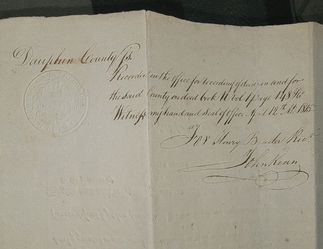 Dauphin County ss.
Recorded in the office for recording of deeds in and for
the said County in deed book N vol 1 page 148 &c
Witness my hand and seal of office April 12th Ad. 1805
For Henry Recr.
John